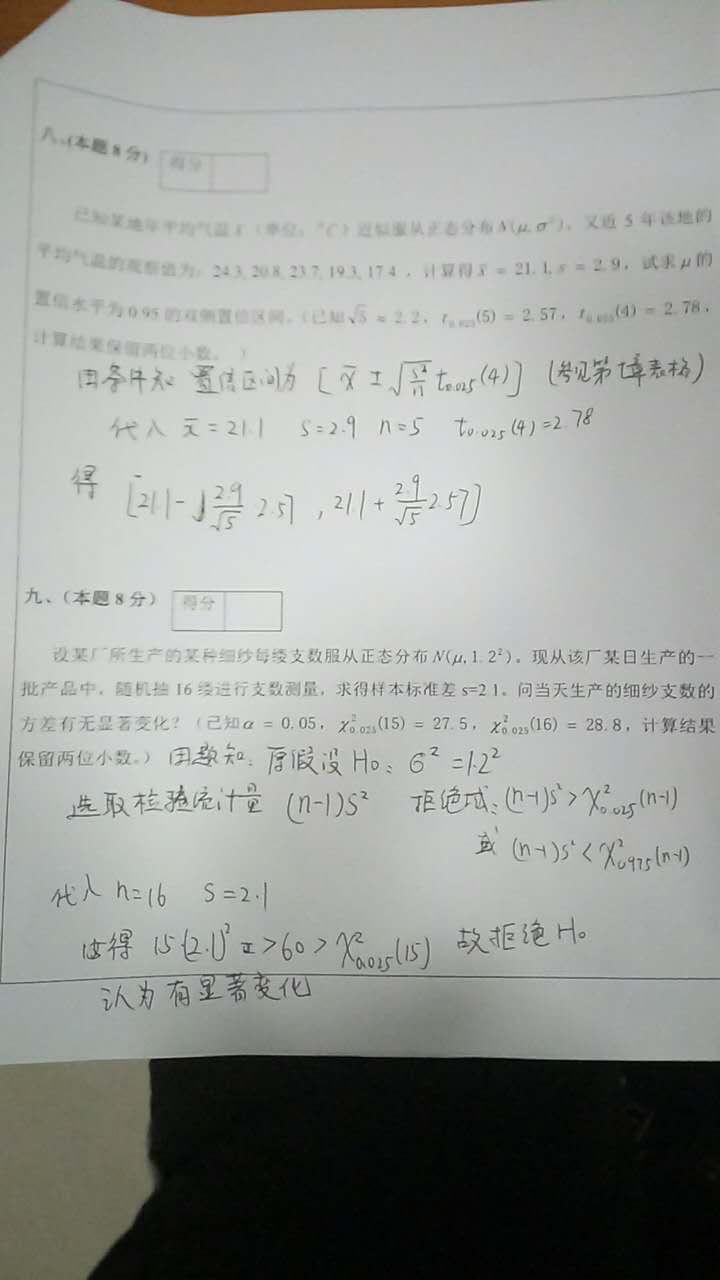 八、(本题 8 分) 得分
已知某地年平均气温 X (单位: °C) 近似服从正态分布 N(μ, σ²), 又近 5 年该地的
平均气温的观察值为: 24.3, 20.8, 23.7, 19.3, 17.4, 计算得 x̄ = 21.1, s = 2.9, 试求 μ 的
置信水平为 0.95 的双侧置信区间。(已知 √5 ≈ 2.2, t₀.₀₂₅(5) = 2.57, t₀.₀₂₅(4) = 2.78,
计算结果保留两位小数。)
由条件知 置信区间为 [x̄ ± √(s²/n) t₀.₀₂₅(4)] (参见第七章表格)
代入 x̄ = 21.1 s = 2.9 n = 5 t₀.₀₂₅(4) = 2.78
得 [21.1 - 2.9/√5 2.57 , 21.1 + 2.9/√5 2.57]
九、(本题 8 分) 得分
设某厂所生产的某种细纱每缕支数服从正态分布 N(μ, 1.2²)。现从该厂某日生产的一
批产品中, 随机抽 16 缕进行支数测量, 求得样本标准差 s=2.1。问当天生产的细纱支数的
方差有无显著变化? (已知 α = 0.05, χ²₀.₀₂₅(15) = 27.5, χ²₀.₀₂₅(16) = 28.8, 计算结果
保留两位小数。) 由题知: 原假设 H₀: σ² = 1.2²
选取检验统计量 (n-1)S² 拒绝域: (n-1)s² > χ²₀.₀₂₅(n-1)
或 (n-1)s² < χ²₀.₉₇₅(n-1)
代入 n=16 S=2.1
得 15(2.1)² > 60 > χ²₀.₀₂₅(15) 故拒绝 H₀
认为有显著变化